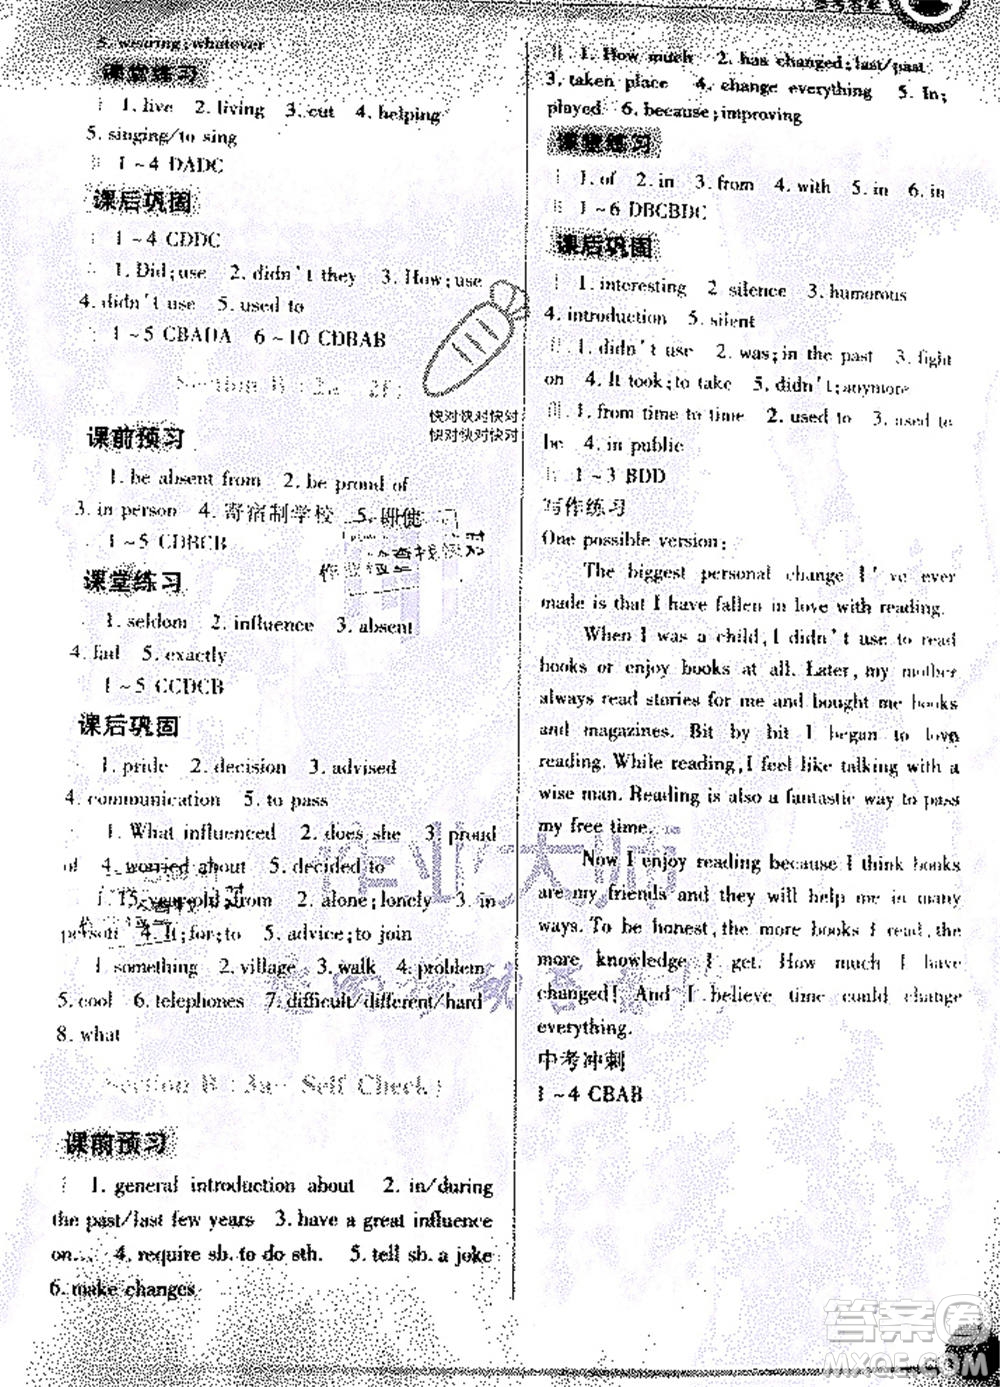 参考答案
5. wearing;whatever
课堂练习
1. live 2. living 3. cut 4. helping
5. singing/to sing
1～4 DADC
课后巩固
1～4 CDDC
1. Did;use 2. didn't they 3. How;use
4. didn't use 5. used to
1～5 CBADA 6～10 CDBAB
Section B：2a－2f
课前预习
1. be absent from 2. be proud of
3. in person 4. 寄宿制学校 5.
1～5 CDBCB
课堂练习
1. seldom 2. influence 3. absent
4. fail 5. exactly
1～5 CCDCB
课后巩固
1. pride 2. decision 3. advised
4. communication 5. to pass
1. What influenced 2. does she 3. proud
of 4. worried about 5. decided to
1. 15-year-old;from 2. alone;lonely 3. in
person 4. It;for;to 5. advice;to join
1. something 2. village 3. walk 4. problem
5. cool 6. telephones 7. difficult/different/hard
8. what
Section B：3a－Self Check
课前预习
1. general introduction about 2. in/during
the past/last few years 3. have a great influence
on... 4. require sb. to do sth. 5. tell sb. a joke
6. make changes
1. How much 2. has changed;last/past
3. taken place 4. change everything 5. In;
played 6. because;improving
课堂练习
1. of 2. in 3. from 4. with 5. in 6. in
1～6 DBCBDC
课后巩固
1. interesting 2. silence 3. humorous
4. introduction 5. silent
1. didn't use 2. was;in the past 3. fight
on 4. It took;to take 5. didn't;anymore
1. from time to time 2. used to 3. used to
be 4. in public
1～3 BDD
写作练习
One possible version:
The biggest personal change I've ever
made is that I have fallen in love with reading.
When I was a child, I didn't use to read
books or enjoy books at all. Later, my mother
always read stories for me and bought me books
and magazines. Bit by bit I began to love
reading. While reading, I feel like talking with a
wise man. Reading is also a fantastic way to pass
my free time.
Now I enjoy reading because I think books
are my friends and influence me in many
ways. To be honest, the more books I read, the
more knowledge I get. How much I have
changed! And I believe time could change
everything.
中考冲刺
1～4 CBAB
快对快对快对
快对快对快对
作业大师
答案圈
MXQE.COM